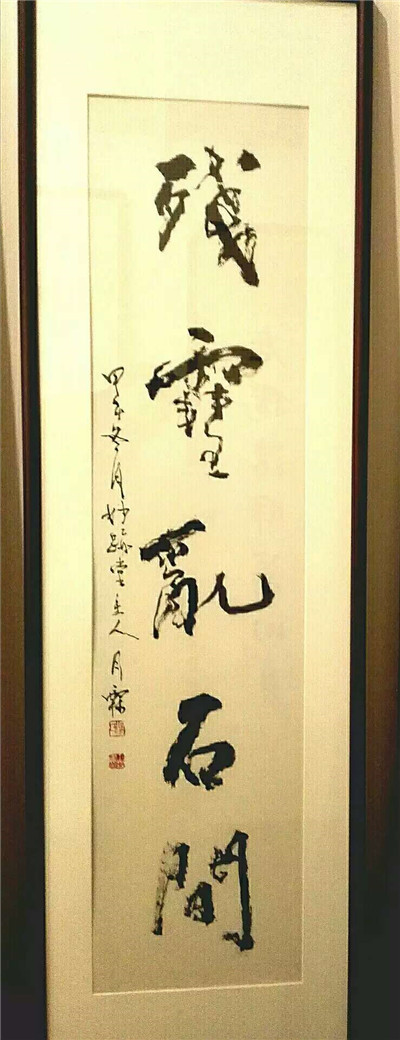 残䨮亂石間
甲午冬月妙跡堂主人月霖